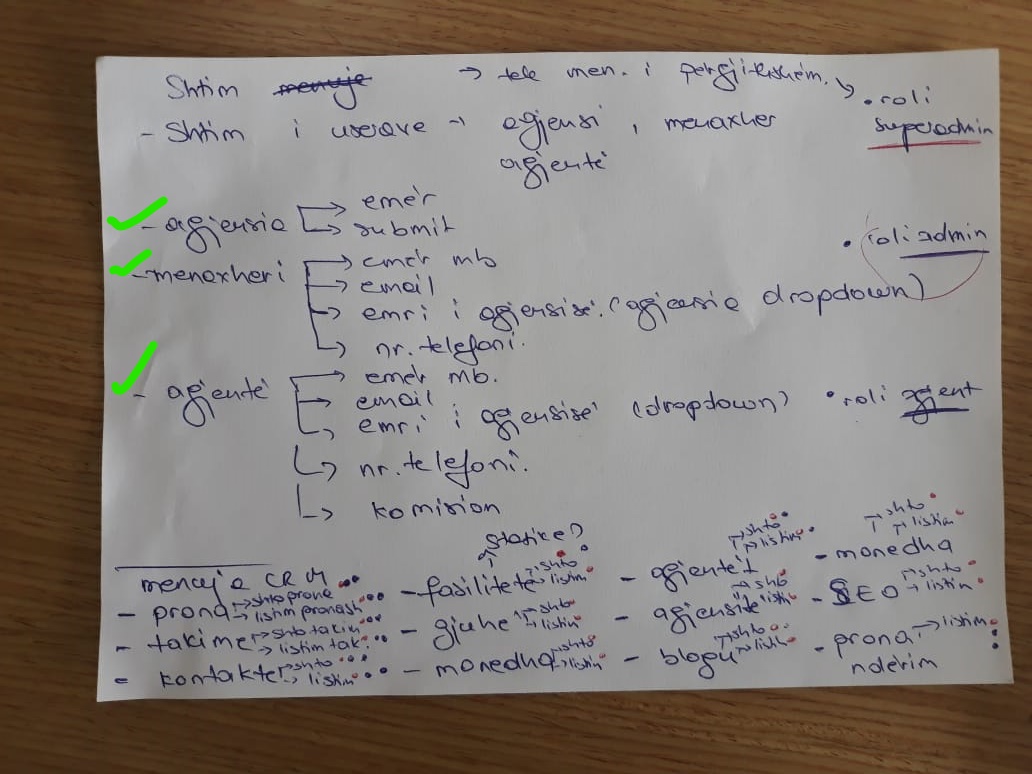 Shtim menuje → tek men. i pergjithshëm.
• roli superadmin
- Shtim i userave → agjensi, menaxher
agjentë
- agjensia → emër
→ submit
• roli admin
- menaxheri → emër mb
→ email
→ emri i agjensisë. (agjensia dropdown)
→ nr. telefoni.
- agjentë → emër mb.
→ email
→ emri i agjensisë (dropdown) • roli agjent
→ nr. telefoni.
→ komision
statike?
menuja CRM
- prona → shto prone
→ listim pronash
- takime → shto takim
→ listim tak.
- kontakte → shto
→ listim
- fasilitete → shto
→ listim
- gjuhe → shto
→ listim
- monedha → shto
→ listim
- agjentët → shto
→ listim
- agjensitë → shto
→ listim
- blogu → shto
→ listim
- monedha → shto
→ listim
- SEO → shto
→ listim
- prona → listim
nderim